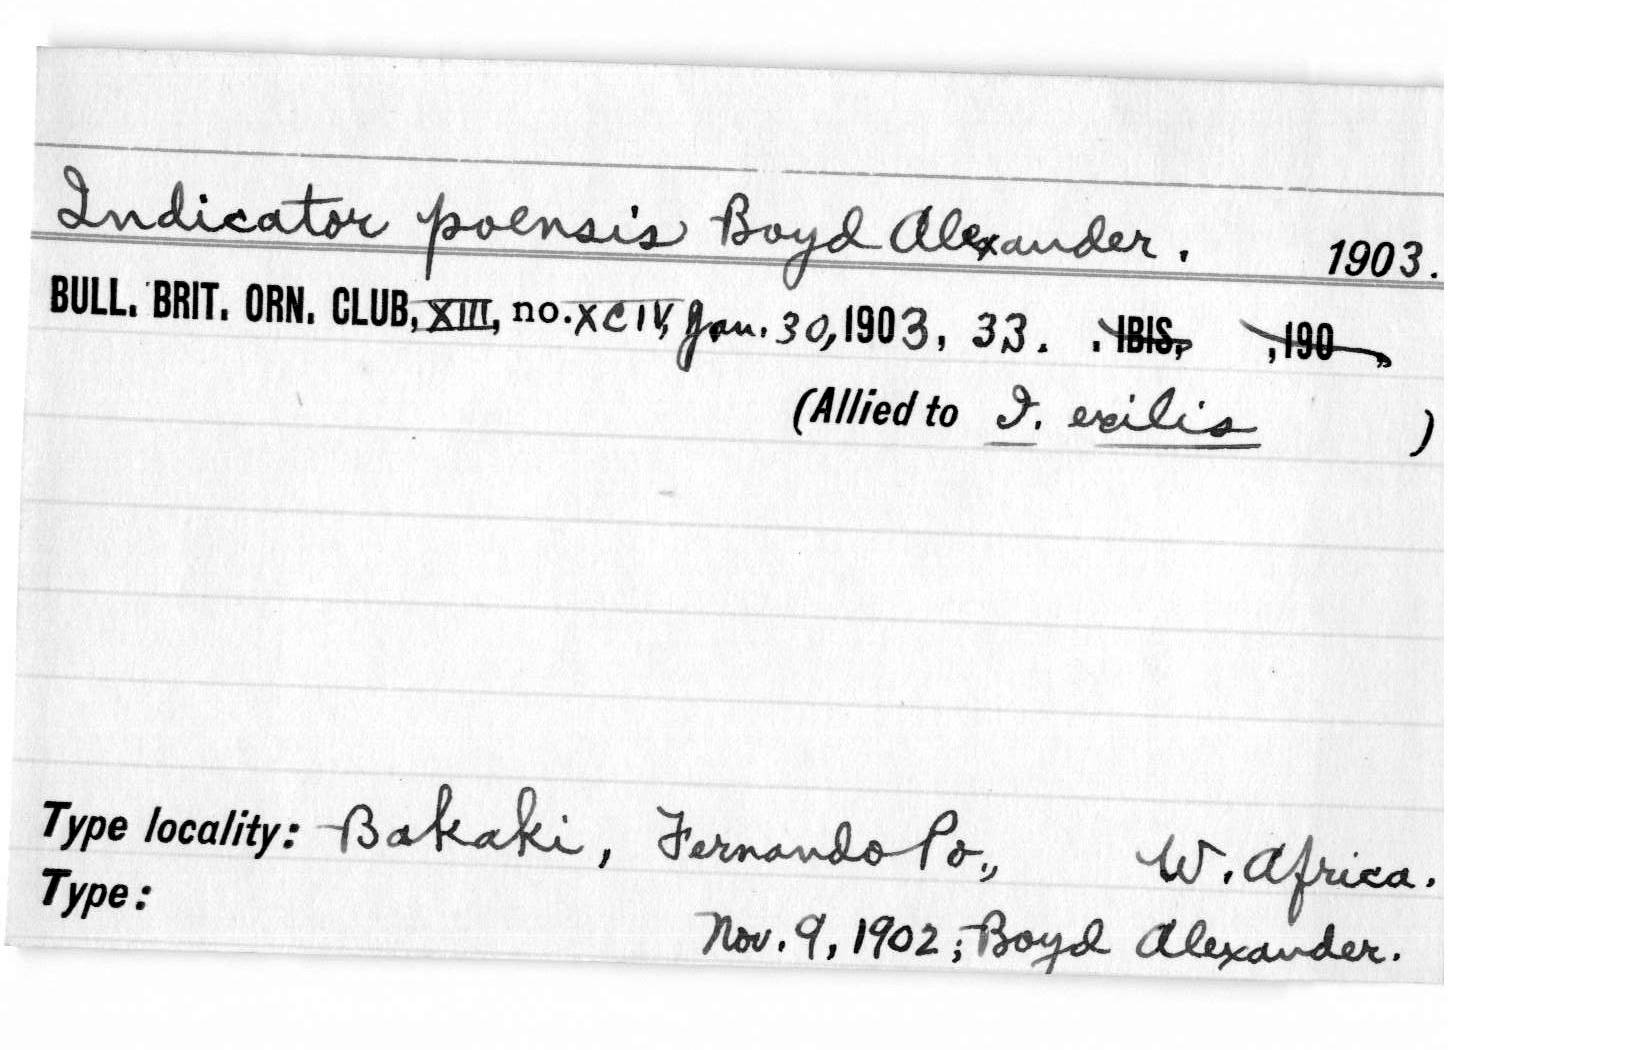 Indicator poensis Boyd Alexander. 1903.
BULL. BRIT. ORN. CLUB, XIII, no. XCIV, Jan. 30, 1903, 33. . IBIS, , 190 ,
(Allied to I. exilis )
Type locality: Bakaki, Fernando Po., W. Africa.
Type:
Nov. 9, 1902; Boyd Alexander.